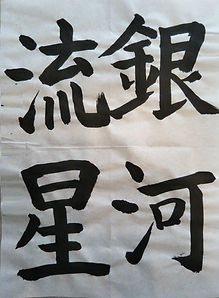 銀河
流星